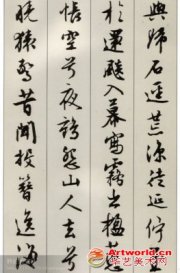 與歸石逕荒涼徒延佇至
於還飆入幕寫霧出楹蕙
帳空兮夜鶴怨山人去兮
曉猿驚昔聞投簪逸海
Artworld.cn